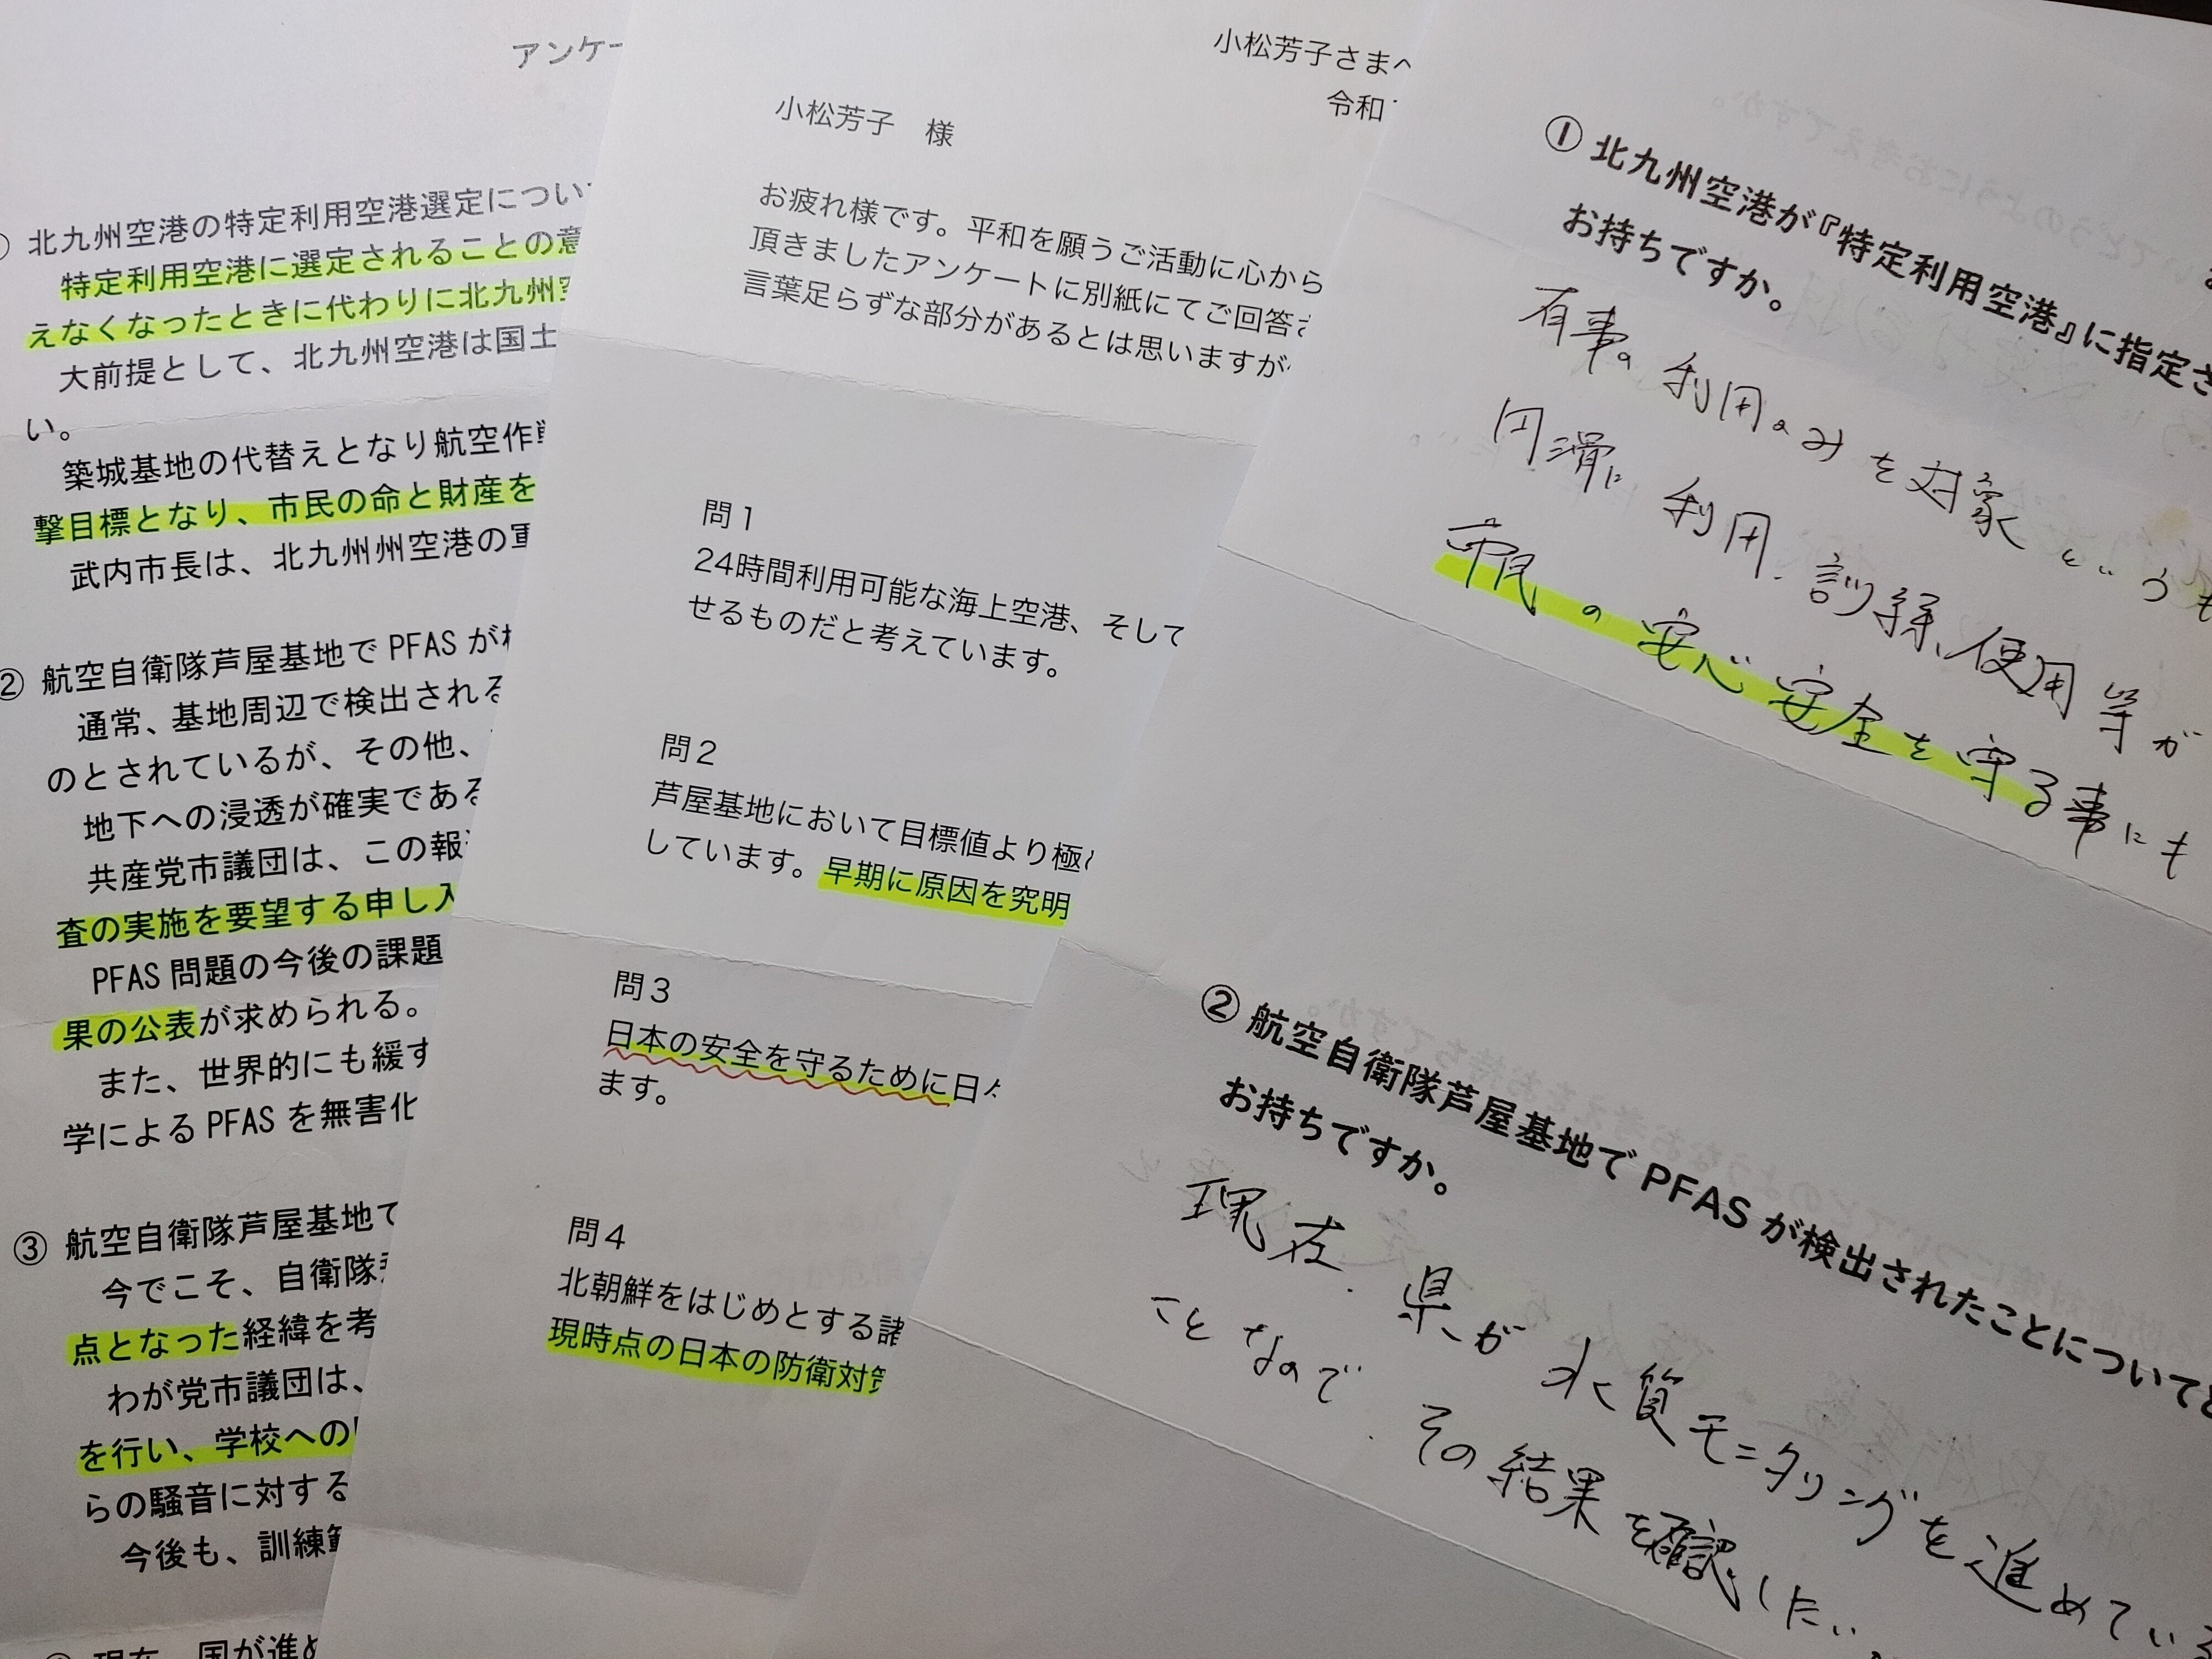 アンケー
北九州空港の特定利用空港選定につい
特定利用空港に選定されることの意
えなくなったときに代わりに北九州空
大前提として、北九州空港は国土
い。
築城基地の代替えとなり航空作戦
撃目標となり、市民の命と財産を
武内市長は、北九州州空港の軍
② 航空自衛隊芦屋基地で PFAS が検
通常、基地周辺で検出される
のとされているが、その他、
地下への浸透が確実である
共産党市議団は、この報道
査の実施を要望する申し入
PFAS 問題の今後の課題
果の公表が求められる。
また、世界的にも緩す
学による PFAS を無害化
③ 航空自衛隊芦屋基地で
今でこそ、自衛隊
点となった経緯を考
わが党市議団は、
を行い、学校への
らの騒音に対する
今後も、訓練
現在、国が進め
小松芳子さまへ
令和
小松芳子　様
お疲れ様です。平和を願うご活動に心から
頂きましたアンケートに別紙にてご回答さ
言葉足らずな部分があるとは思いますが
問１
24時間利用可能な海上空港、そして
せるものだと考えています。
問２
芦屋基地において目標値より極
しています。早期に原因を究明
問３
日本の安全を守るために日々
ます。
問４
北朝鮮をはじめとする諸
現時点の日本の防衛対策
① 北九州空港が『特定利用空港』に指定さ
お持ちですか。
有事の利用のみを対象というも
円滑に利用、訓練、使用等が
市民の安心安全を守る事にも
② 航空自衛隊芦屋基地で PFAS が検出されたことについてど
お持ちですか。
現在、県が水質モニタリングを進めている
ことなので、その結果を確認したい。